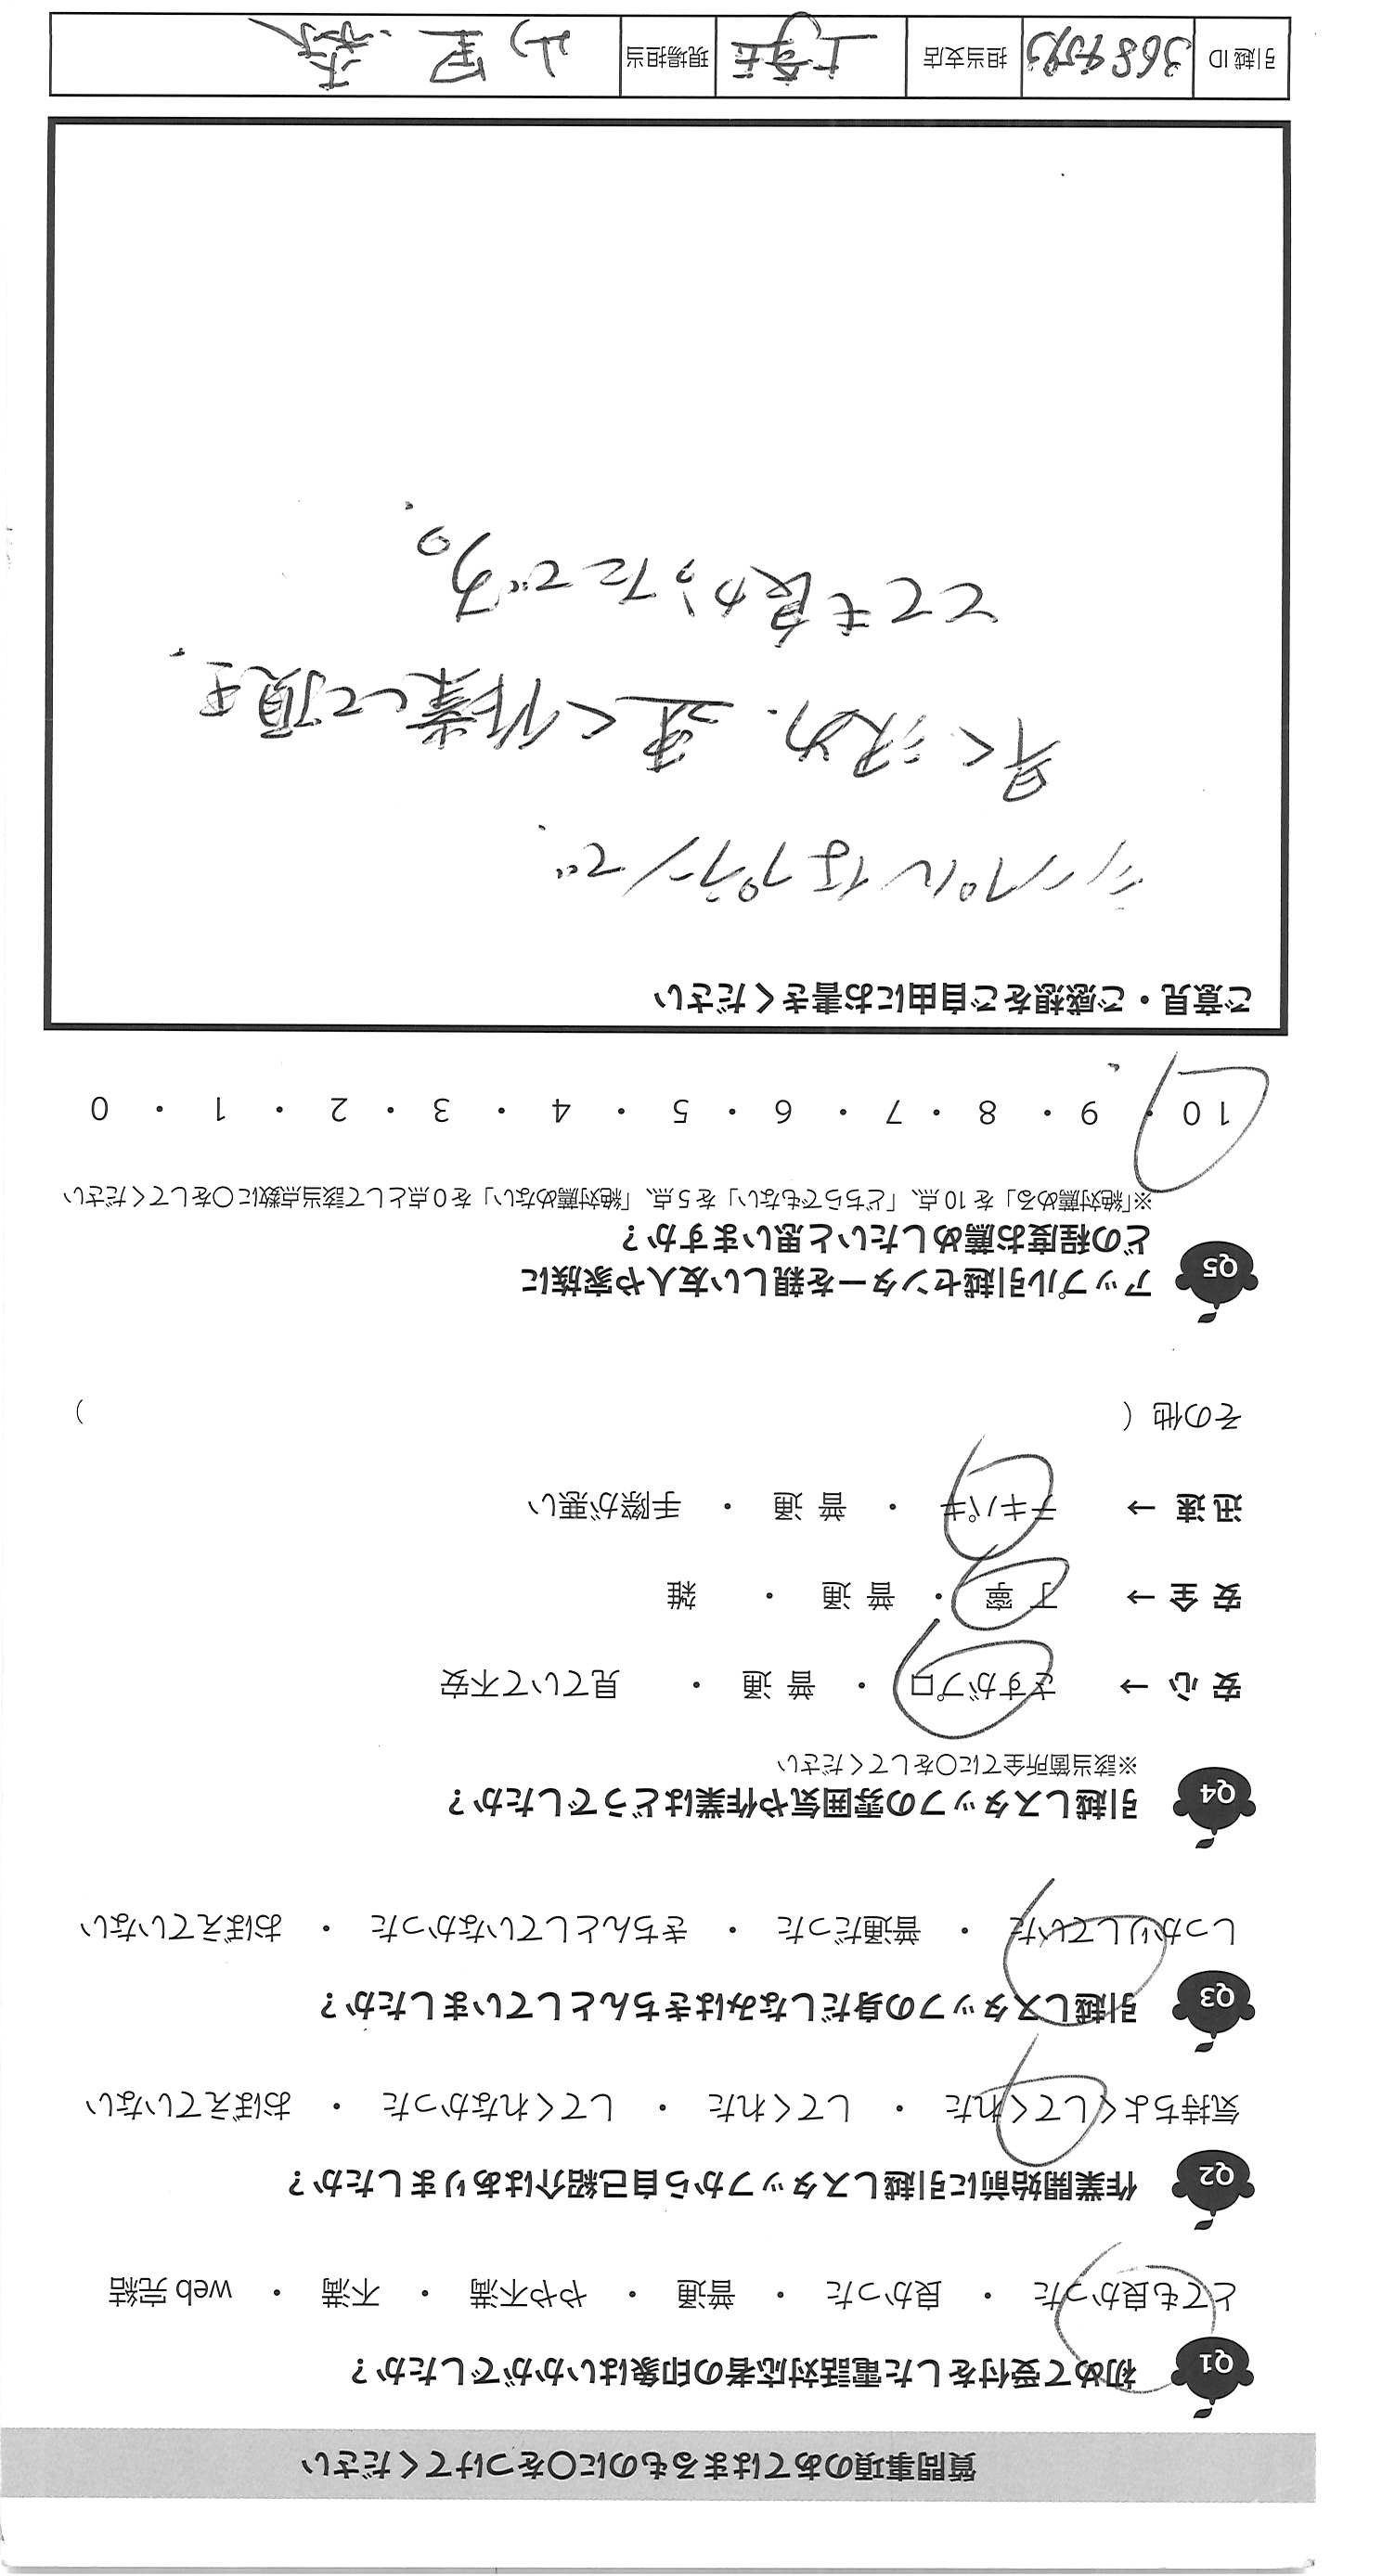 質問事項のあてはまるものに〇をつけてください
Q1 初めて受付をした電話対応者の印象はいかがでしたか？
とても良かった ・ 良かった ・ 普通 ・ やや不満 ・ 不満 ・ web 完結
Q2 作業開始前に引越しスタッフから自己紹介はありましたか？
気持ちよくしてくれた ・ してくれた ・ してくれなかった ・ おぼえていない
Q3 引越しスタッフの身だしなみはきちんとしていましたか？
しっかりしていた ・ 普通だった ・ きちんとしていなかった ・ おぼえていない
Q4 引越しスタッフの雰囲気や作業はどうでしたか？
※該当箇所全てに〇をしてください
安心 → さすがプロ ・ 普通 ・ 見ていて不安
安全 → 丁寧 ・ 普通 ・ 雑
迅速 → テキパキ ・ 普通 ・ 手際が悪い
その他（ ）
Q5 アップル引越センターを親しい友人や家族に
どの程度お薦めしたいと思いますか？
※「絶対薦める」を10点、「どちらでもない」を5点、「絶対薦めない」を0点として該当点数に〇をしてください
10 ・ 9 ・ 8 ・ 7 ・ 6 ・ 5 ・ 4 ・ 3 ・ 2 ・ 1 ・ 0
ご意見・ご感想をご自由にお書きください
シンプルなプランで、
早く決め、速く作業して頂き、
とても良かったです。
引越ID 担当支店 現場担当